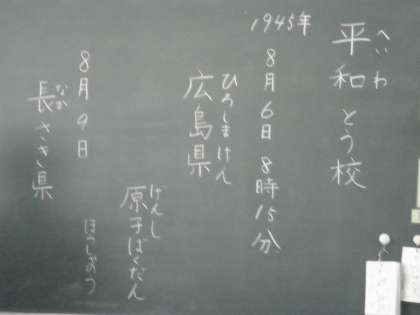 へいわ
平和とう校
1945年
8月6日8時15分
ひろしまけん
広島県
げんし
原子ばくだん
ほうしゃのう
8月9日
なが
長さき県